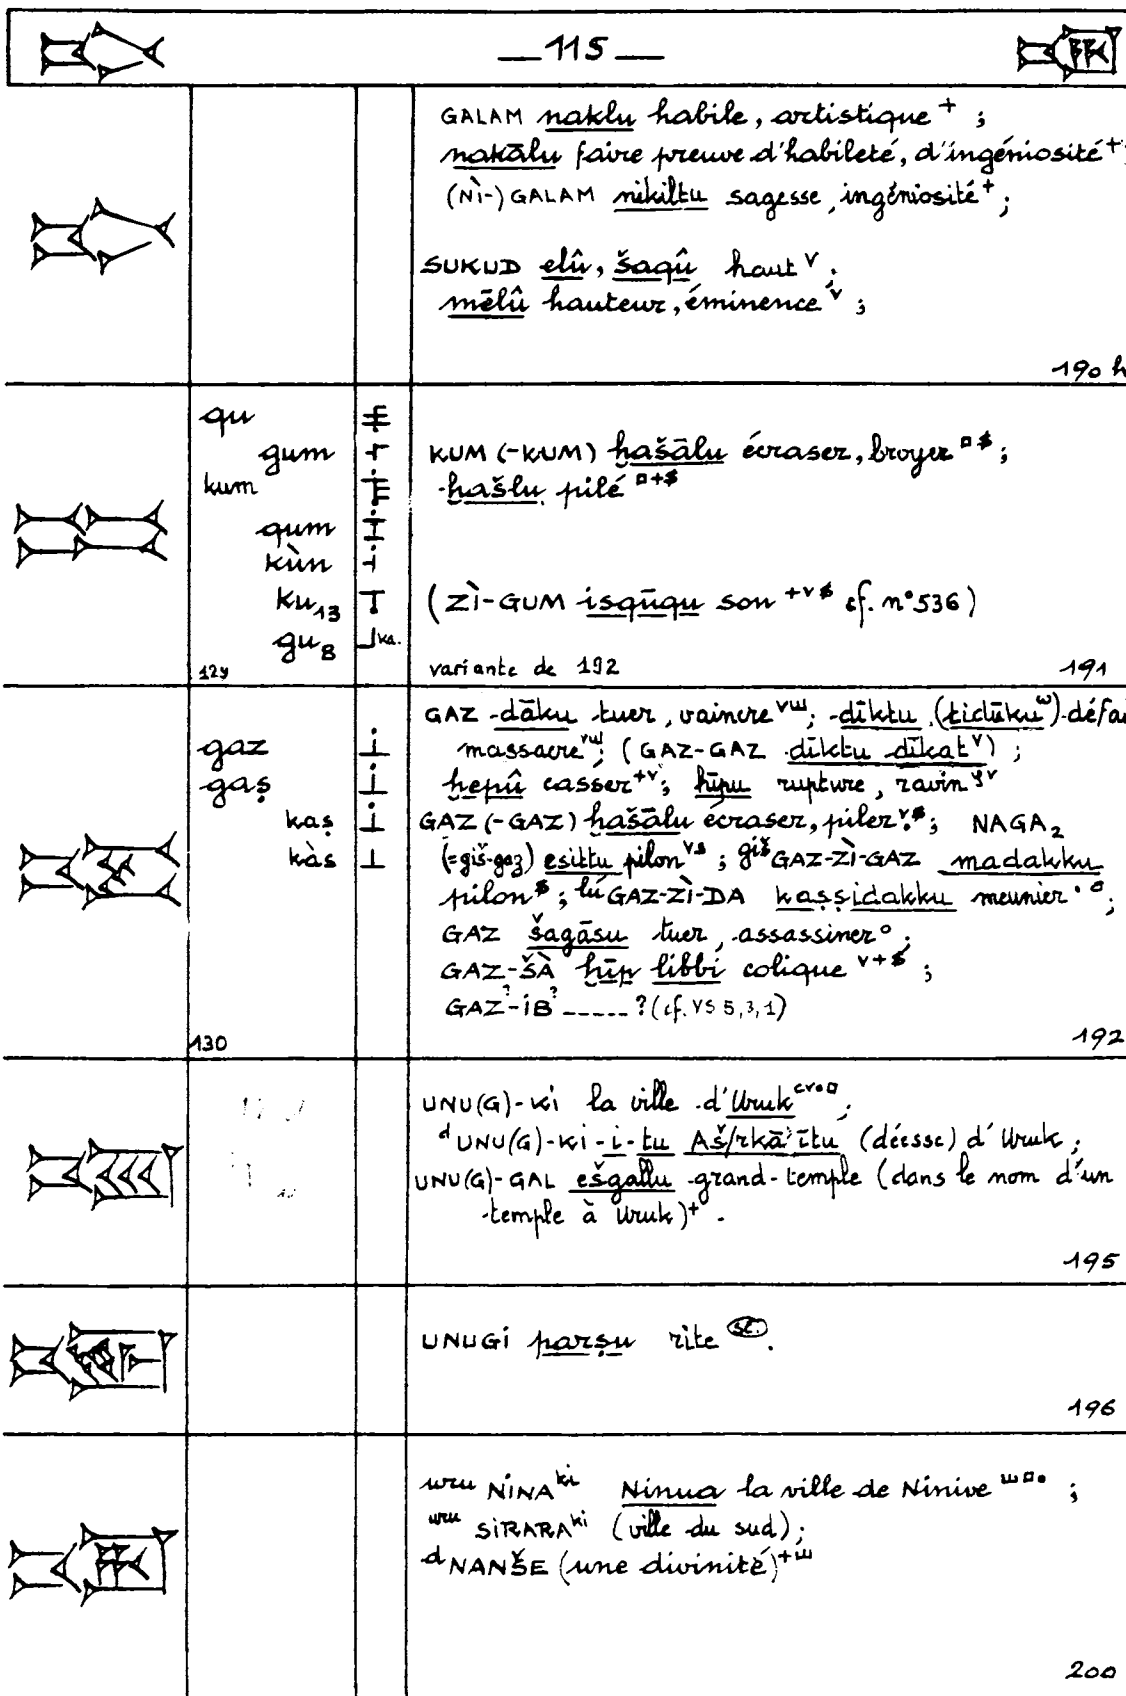 — 115 —
GALAM naklu habile, artistique + ;
nakālu faire preuve d'habileté, d'ingéniosité + ;
(NÌ-) GALAM nikiltu sagesse, ingéniosité + ;
SUKUD elû, šaqû haut v ;
mēlû hauteur, éminence v ;
190 h
qu
gum
kum
qum
kùn
ku₁₃
gu₈ ka.
129
KUM (-KUM) ḫašālu écraser, broyer ;
ḫašlu pilé
(ZÌ-GUM isqūqu son cf. n° 536)
variante de 192
191
gaz
gaṣ
kaṣ
kàs
130
GAZ dāku tuer, vaincre ; dīktu (tidūku) défai
massacre ; (GAZ-GAZ dīktu dīkat v) ;
ḫepû casser +v ; ḫīpu rupture, ravin
GAZ (-GAZ) ḫašālu écraser, piler ; NAGA₂
(= giš-gaz) esittu pilon ; giš GAZ-ZÌ-GAZ madakku
pilon ; lú GAZ-ZÌ-DA kaṣṣidakku meunier ;
GAZ šagāšu tuer, assassiner ° ;
GAZ-ŠÀ ḫīp libbi colique ;
GAZ?-ÍB? ----- ? (cf. VS 5, 3, 1)
192
UNU(G)-KI la ville d'Uruk ;
d UNU(G)-KI-i-tu Aš/rkā'ītu (déesse) d'Uruk ;
UNU(G)-GAL ešgallu grand-temple (dans le nom d'un
temple à Uruk) + .
195
UNUGI parṣu rite sc.
196
uru NINA ki Ninua la ville de Ninive ;
uru SIRARA ki (ville du sud) ;
d NANŠE (une divinité)
200